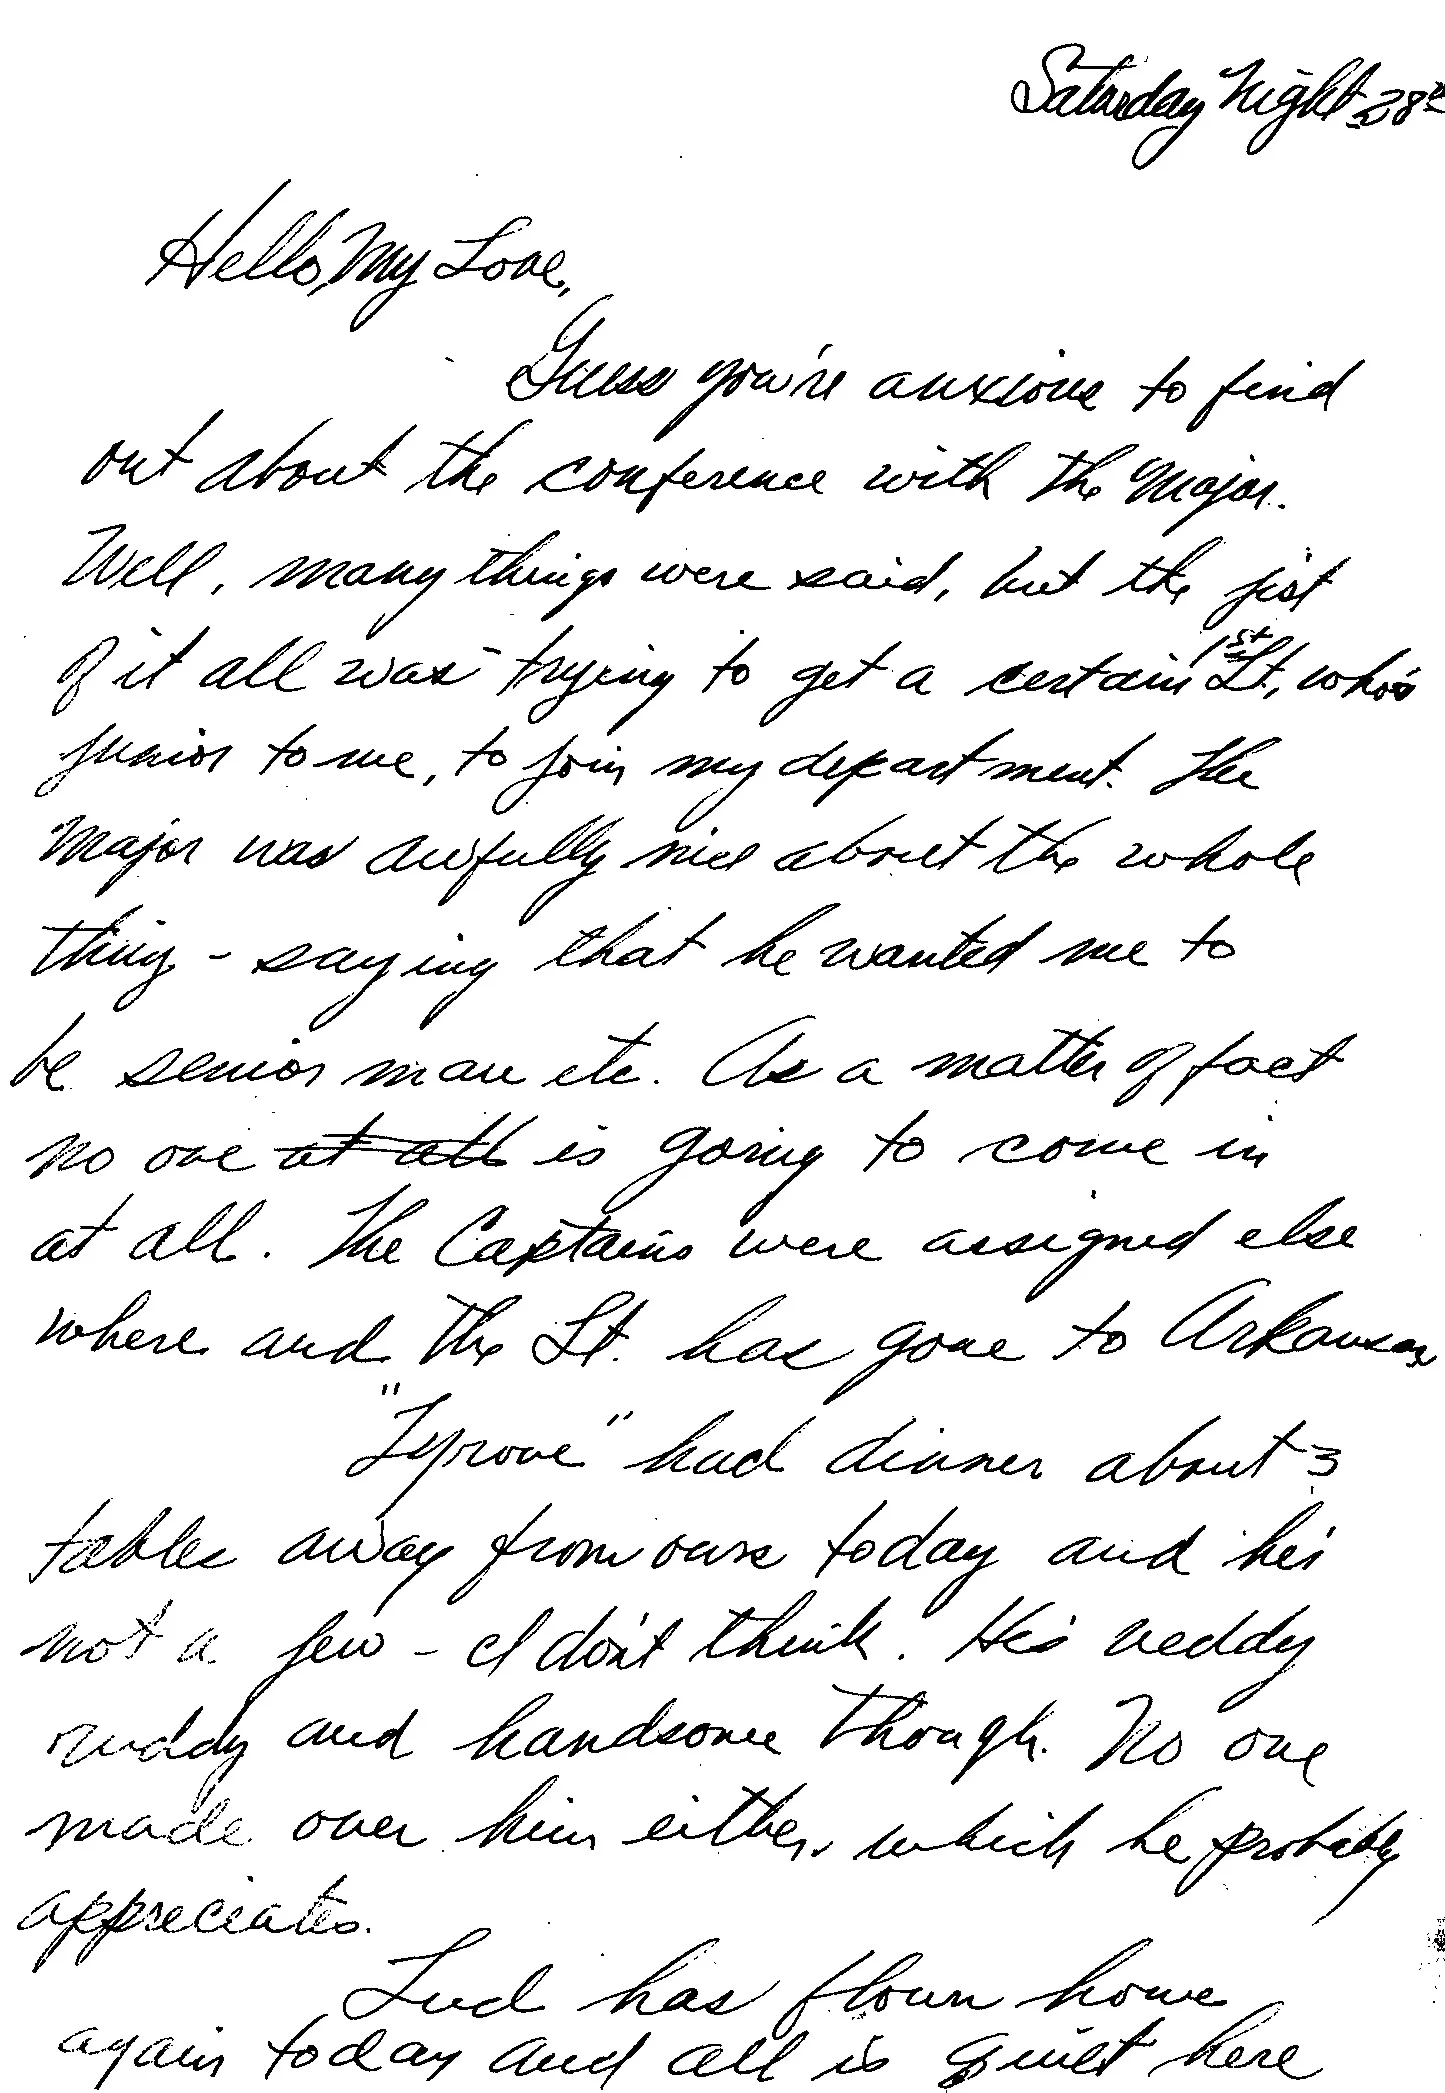 Saturday Night 28th
Hello, My Love,
Guess you're anxious to find
out about the conference with the Major.
Well, many things were said, but the jist
of it all was trying to get a certain 1st Lt, who's
junior to me, to join my department. The
Major was awfully nice about the whole
thing - saying that he wanted me to
be senior man etc. As a matter of fact
no one at all is going to come in
at all. The Captains were assigned else
where and the Lt. has gone to Arkansas
"Tyrone" had dinner about 3
tables away from ours today and he's
not a Jew - I don't think. He's reddy
ruddy and handsome though. No one
made over him either, which he probably
appreciates.
Lud has flown home
again today and all is quiet here